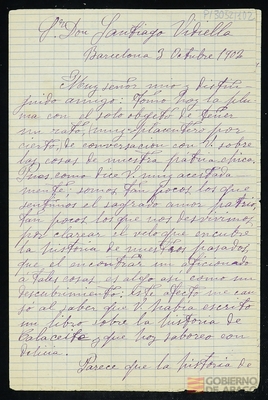 Sr. Don Santiago Vidiella
Barcelona 3 Octubre 1902
Muy señor mio y distin
guido amigo: Tomo hoy la plu
ma con el solo objeto de tener
un rato, muy placentero por
cierto, de conversación con V. sobre
las cosas de nuestra patria chica.
Pues como dice V. muy acertada
mente, somos tan pocos los que
sentimos el sagrado amor patrio,
tan pocos los que nos desvivimos
por clarear el velo que encubre
la historia de nuestros pasados
que el encontrar un aficionado
a tales cosas es algo así como un
descubrimiento: Este efecto me cau
só al saber que V. había escrito
un libro sobre la historia de
Calaceite y que hoy saboreo con
delicia.
Parece que la historia de
GOBIERNO
DE ARAGON